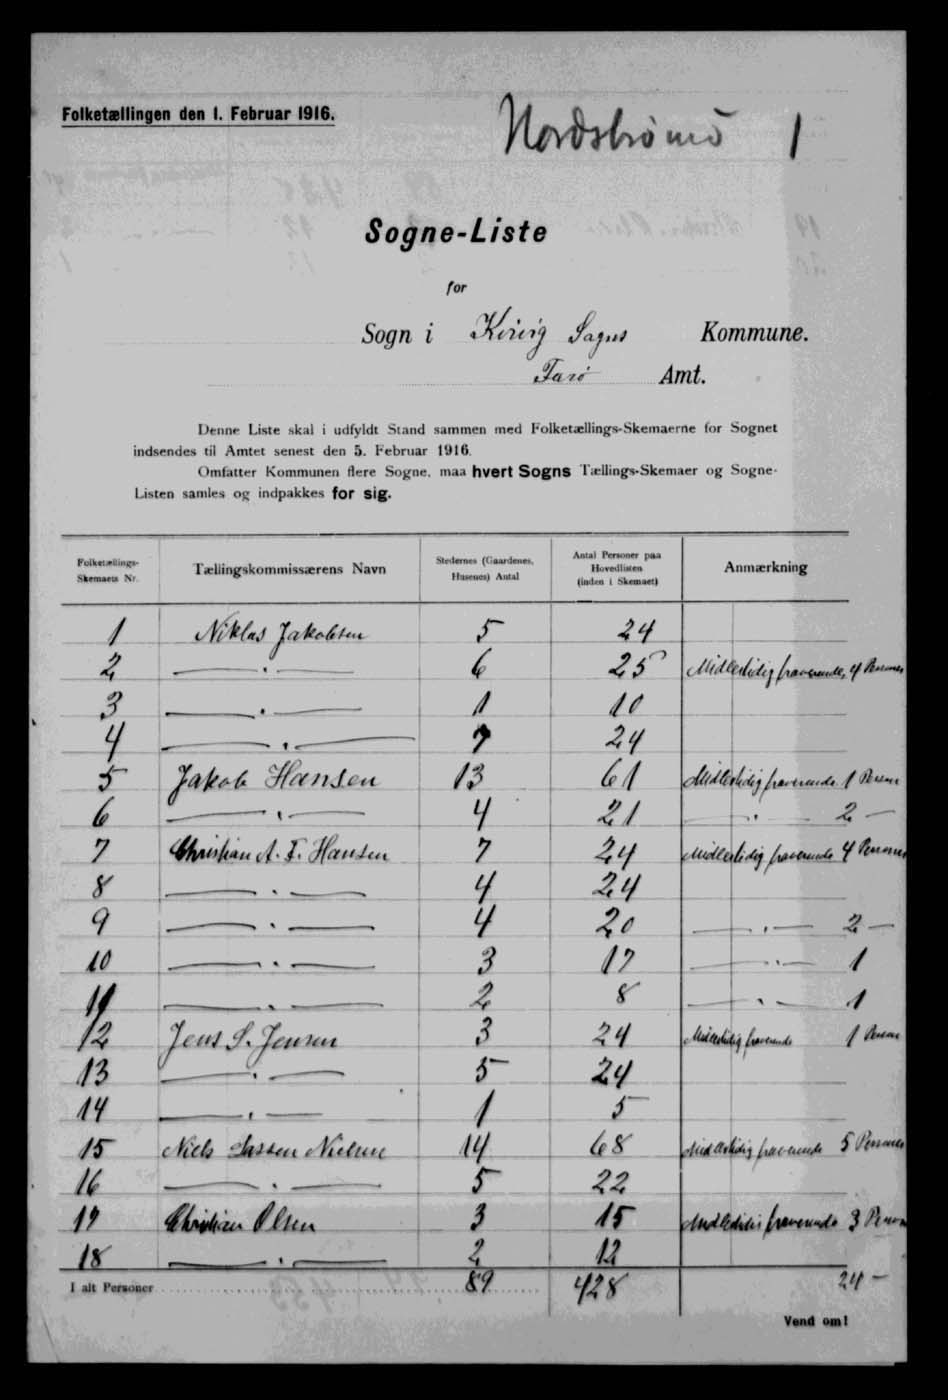 Folketællingen den 1. Februar 1916.
Nordstrømø 1
Sogne-Liste
for
Sogn i Kvivig Sogns Kommune.
Færø Amt.
Denne Liste skal i udfyldt Stand sammen med Folketællings-Skemaerne for Sognet
indsendes til Amtet senest den 5. Februar 1916.
Omfatter Kommunen flere Sogne, maa hvert Sogns Tællings-Skemaer og Sogne-
Listen samles og indpakkes for sig.
Folketællings-Skemaets Nr. Tællingskommissærens Navn Stedernes (Gaardenes, Husenes) Antal Antal Personer paa Hovedlisten (inden i Skemaet) Anmærkning
1 Niklas Jakobsen 5 24
2 — " — 6 25 Midlertidig fraværende, 4 Personer
3 — " — 1 10
4 — " — 7 24
5 Jakob Hansen 13 61 Midlertidig fraværende 1 Person
6 — " — 4 21 — " — 2 —
7 Christian A. F. Hansen 7 24 Midlertidig fraværende 4 Personer
8 — " — 4 24
9 — " — 4 20 — " — 2 —
10 — " — 3 17 — " — 1
11 — " — 2 8 — " — 1
12 Jens S. Jensen 3 24 Midlertidig fraværende 1 Person
13 — " — 5 24
14 — " — 1 5
15 Niels Sassen Nielsen 14 68 Midlertidig fraværende 5 Personer
16 — " — 5 22
17 Christian Olsen 3 15 Midlertidig fraværende 3 Person
18 — " — 2 12
I alt Personer 89 428 24 —
Vend om!